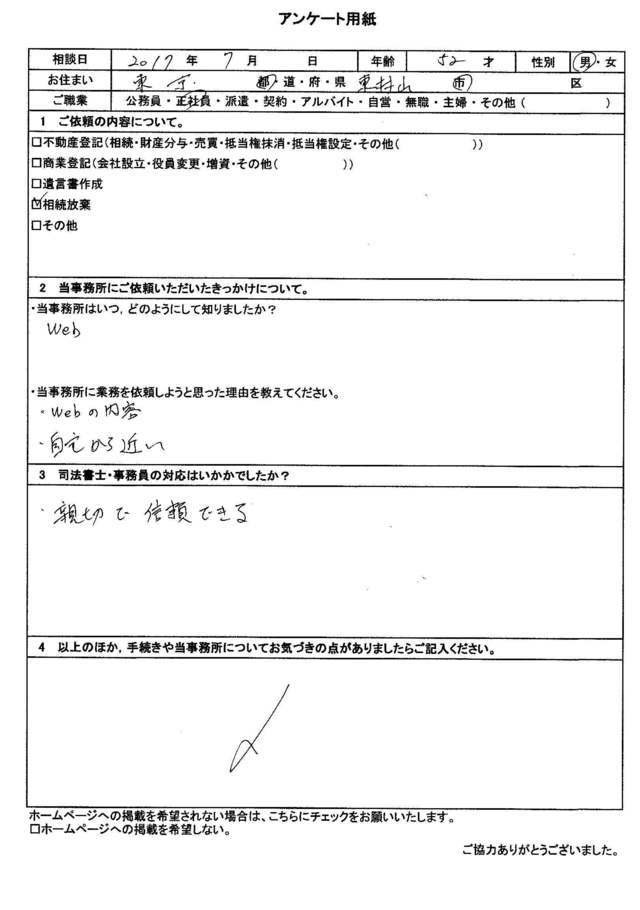 アンケート用紙
相談日 2017年 7月 日 年齢 52才 性別 男・女
お住まい 東京 都・道・府・県 東村山 市 区
ご職業 公務員・正社員・派遣・契約・アルバイト・自営・無職・主婦・その他( )
1 ご依頼の内容について。
□不動産登記(相続・財産分与・売買・抵当権抹消・抵当権設定・その他( ))
□商業登記(会社設立・役員変更・増資・その他( ))
□遺言書作成
☑相続放棄
□その他
2 当事務所にご依頼いただいたきっかけについて。
・当事務所はいつ,どのようにして知りましたか?
Web
・当事務所に業務を依頼しようと思った理由を教えてください。
・Webの内容
・自宅から近い
3 司法書士・事務員の対応はいかかでしたか?
・親切で信頼できる
4 以上のほか,手続きや当事務所についてお気づきの点がありましたらご記入ください。
ホームページへの掲載を希望されない場合は、こちらにチェックをお願いいたします。
□ホームページへの掲載を希望しない。
ご協力ありがとうございました。